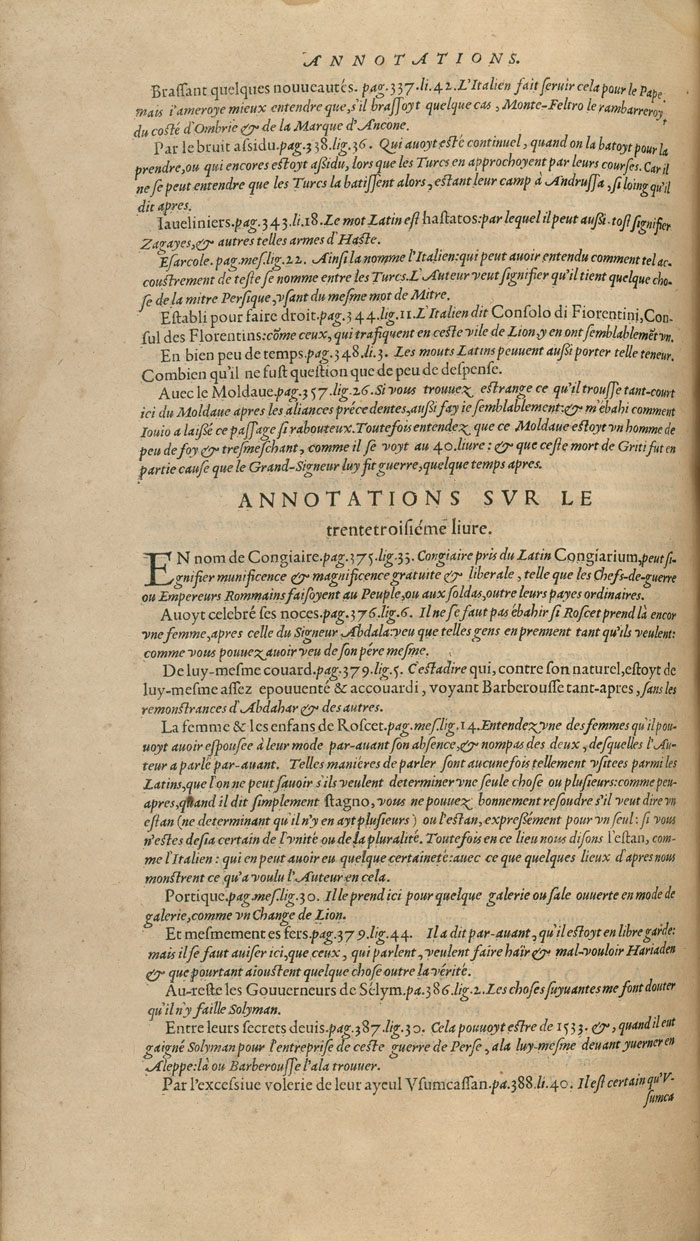 ANNOTATIONS.
Brassant quelques nouueautés. pag.337.li.42. L'Italien fait seruir cela pour le Pape,
mais i'ameroye mieux entendre que, s'il brassoyt quelque cas, Monte-Feltro le rambarreroy
du costé d'Ombrie & de la Marque d'Ancone.
Par le bruit assidu. pag.338.lig.36. Qui auoyt esté continuel, quand on la batoyt pour la
prendre, ou qui encores estoyt assidu, lors que les Turcs en approchoyent par leurs courses. Car il
ne se peut entendre que les Turcs la batissent alors, estant leur camp à Andrussa, si loing qu'il
dit apres.
Iaueliniers. pag.343.li.18. Le mot Latin est hastatos: par lequel il peut aussi-tost signifier
Zagayes, & autres telles armes d'Haste.
Esarcole. pag.mes.lig.22. Ainsi la nomme l'Italien: qui peut auoir entendu comment tel ac-
coustrement de teste se nomme entre les Turcs. L'Auteur veut signifier qu'il tient quelque cho-
se de la mitre Persique, vsant du mesme mot de Mitre.
Establi pour faire droit. pag.344.lig.11. L'Italien dit Consolo di Fiorentini, Con-
sul des Florentins: cõme ceux, qui trafiquent en ceste vile de Lion, y en ont semblablemẽt vn.
En bien peu de temps. pag.348.li.3. Les mouts Latins peuuent aussi porter telle teneur,
Combien qu'il ne fust question que de peu de despense.
Auec le Moldaue. pag.357.lig.26. Si vous trouuez estrange ce qu'il trousse tant-court
ici du Moldaue apres les aliances précedentes, aussi fay ie semblablement: & m'ébahi comment
Iouio a laissé ce passage si rabouteux. Toutefois entendez que ce Moldaue estoyt vn homme de
peu de foy & tresmeschant, comme il se voyt au 40. liure: & que ceste mort de Griti fut en
partie cause que le Grand-Signeur luy fit guerre, quelque temps apres.
ANNOTATIONS SVR LE
trentetroisiéme liure.
EN nom de Congiaire. pag.375.lig.33. Congiaire pris du Latin Congiarium, peut si-
gnifier munificence & magnificence gratuite & liberale, telle que les Chefs-de-guerre
ou Empereurs Rommains faisoyent au Peuple, ou aux soldas, outre leurs payes ordinaires.
Auoyt celebré ses noces. pag.376.lig.6. Il ne se faut pas ébahir si Roscet prend là encor
vne femme, apres celle du Signeur Abdala: veu que telles gens en prennent tant qu'ils veulent:
comme vous pouuez auoir veu de son pére mesme.
De luy-mesme couard. pag.379.lig.5. C'estadire qui, contre son naturel, estoyt de
luy-mesme assez epouuenté & accouardi, voyant Barberousse tant-apres, sans les
remonstrances d'Abdahar & des autres.
La femme & les enfans de Roscet. pag.mes.lig.14. Entendez vne des femmes qu'il pou-
uoyt auoir espousee à leur mode par-auant son absence, & nompas des deux, desquelles l'Au-
teur a parlé par-auant. Telles manières de parler sont aucunefois tellement vsitees parmi les
Latins, que l'on ne peut sauoir s'ils veulent determiner vne seule chose ou plusieurs: comme peu-
apres, quand il dit simplement stagno, vous ne pouuez bonnement resoudre s'il veut dire vn
estan (ne determinant qu'il n'y en ayt plusieurs) ou l'estan, expressément pour vn seul: si vous
n'estes desia certain de l'vnité ou de la pluralité. Toutefois en ce lieu nous disons l'estan, com-
me l'Italien: qui en peut auoir eu quelque certaineté: auec ce que quelques lieux d'apres nous
monstrent ce qu'a voulu l'Auteur en cela.
Portique. pag.mes.lig.30. Il le prend ici pour quelque galerie ou sale ouuerte en mode de
galerie, comme vn Change de Lion.
Et mesmement es fers. pag.379.lig.44. Il a dit par-auant, qu'il estoyt en libre garde:
mais il se faut auiser ici, que ceux, qui parlent, veulent faire haïr & mal-vouloir Hariaden
& que pourtant aioustent quelque chose outre la vérité.
Au-reste les Gouuerneurs de Sélym. pa.386.lig.2. Les choses suyuantes me font douter
qu'il n'y faille Solyman.
Entre leurs secrets deuis. pag.387.lig.30. Cela pouuoyt estre de 1533. &, quand il eut
gaigné Solyman pour l'entreprise de ceste guerre de Perse, ala luy-mesme deuant yuerner en
Aleppe: là ou Barberousse l'ala trouuer.
Par l'excessiue volerie de leur ayeul Vsumcassan. pa.388.li.40. Il est certain qu'V-
sumca